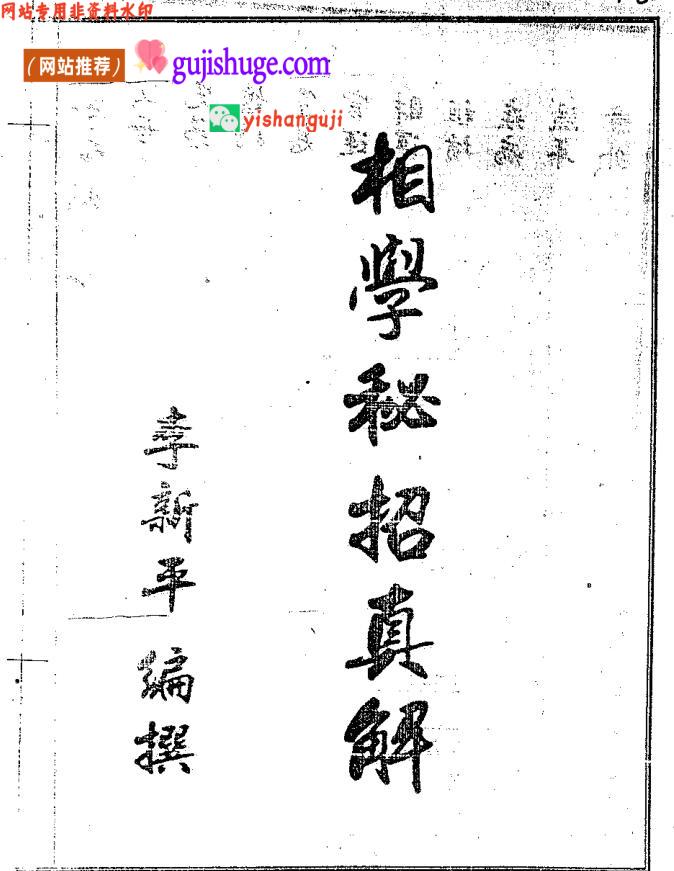 网站专用非资料水印
（网站推荐） gujishuge.com
yishanguji
相學秘招真解
李新平 編撰